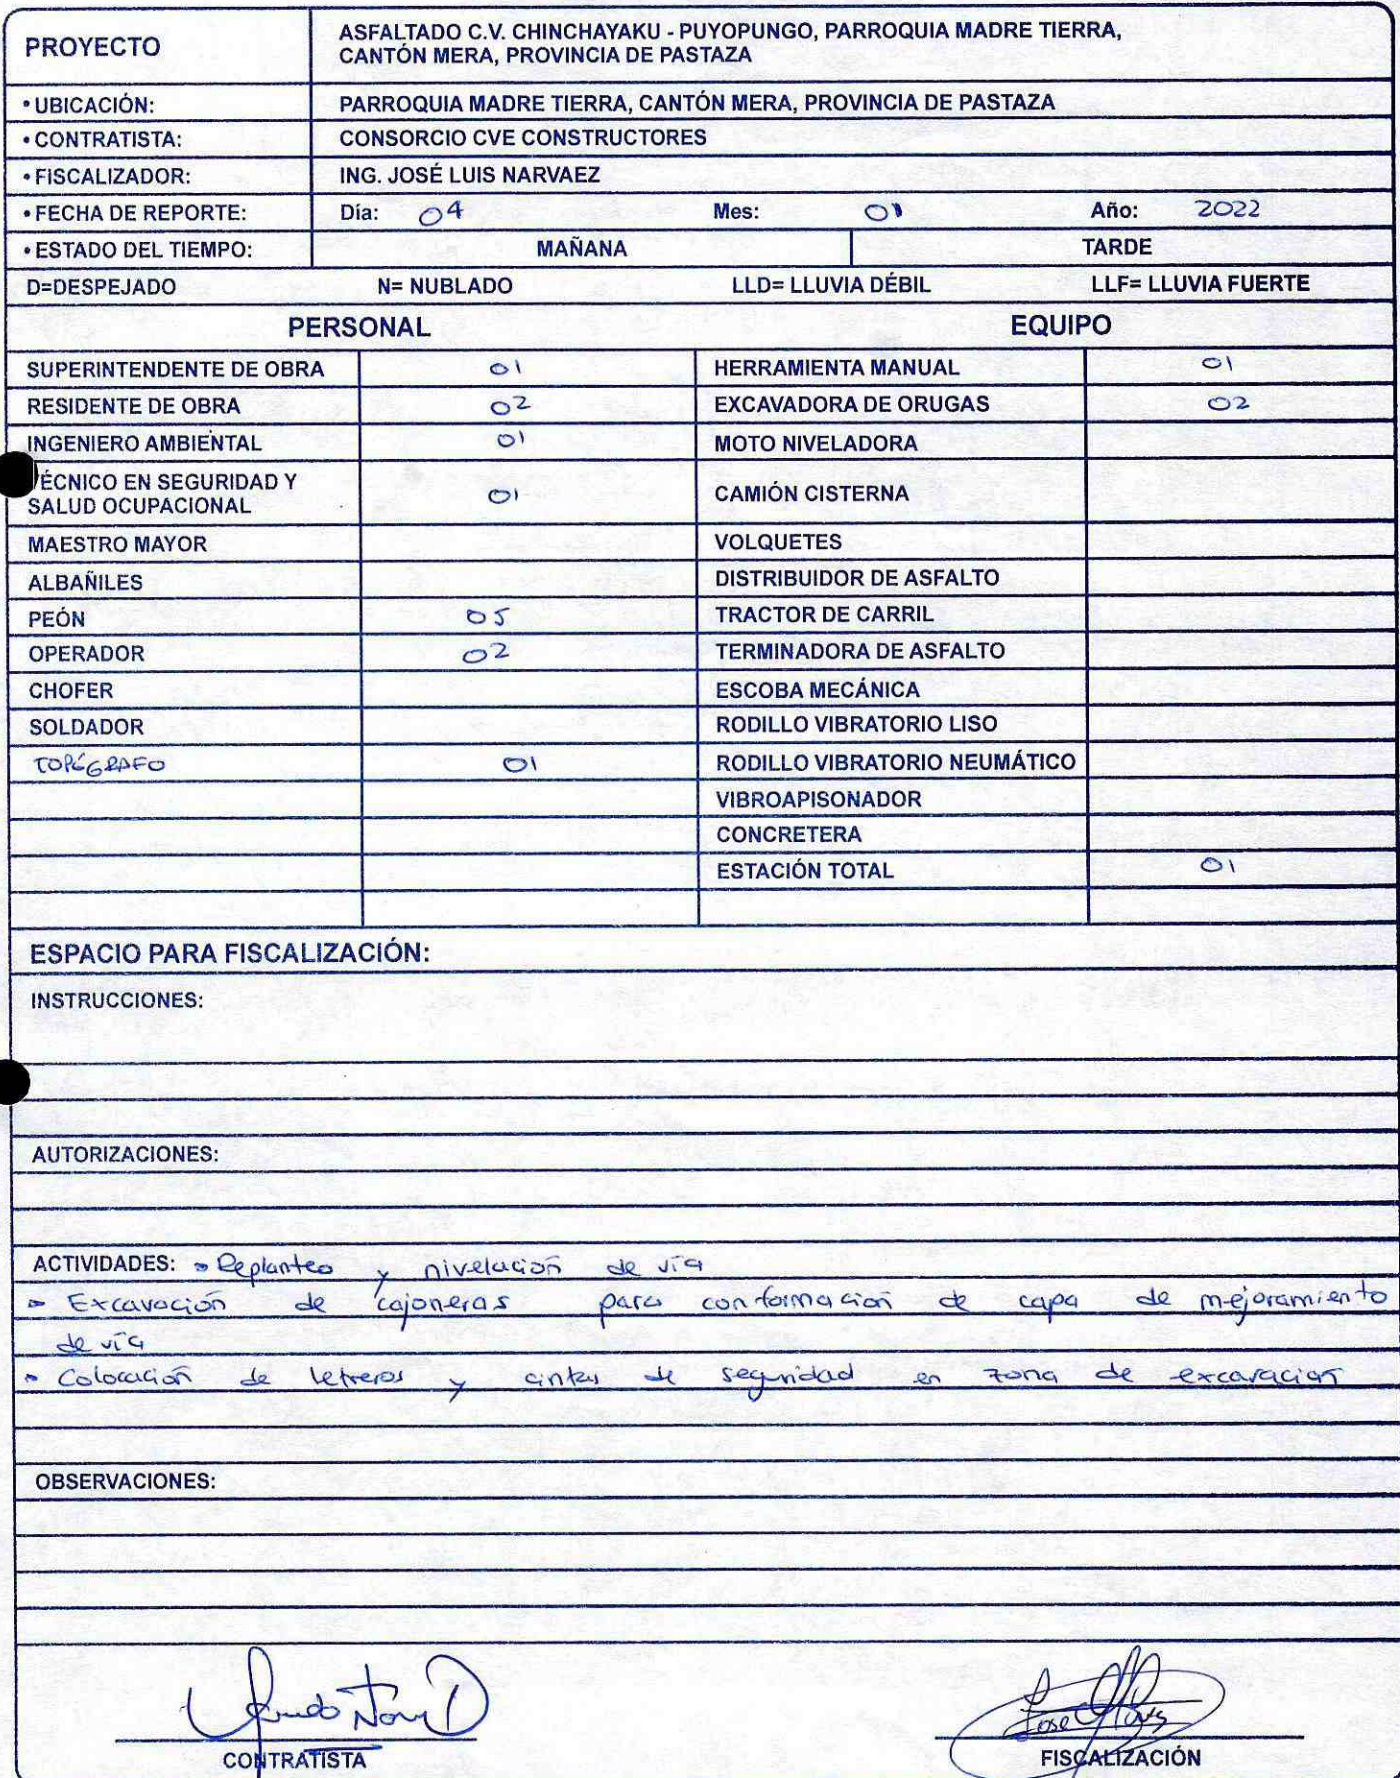 PROYECTO ASFALTADO C.V. CHINCHAYAKU - PUYOPUNGO, PARROQUIA MADRE TIERRA,
CANTÓN MERA, PROVINCIA DE PASTAZA
• UBICACIÓN: PARROQUIA MADRE TIERRA, CANTÓN MERA, PROVINCIA DE PASTAZA
• CONTRATISTA: CONSORCIO CVE CONSTRUCTORES
• FISCALIZADOR: ING. JOSÉ LUIS NARVAEZ
• FECHA DE REPORTE: Día: 04 Mes: 01 Año: 2022
• ESTADO DEL TIEMPO: MAÑANA TARDE
D=DESPEJADO N= NUBLADO LLD= LLUVIA DÉBIL LLF= LLUVIA FUERTE
PERSONAL EQUIPO
SUPERINTENDENTE DE OBRA 01 HERRAMIENTA MANUAL 01
RESIDENTE DE OBRA 02 EXCAVADORA DE ORUGAS 02
INGENIERO AMBIENTAL 01 MOTO NIVELADORA
TÉCNICO EN SEGURIDAD Y
SALUD OCUPACIONAL 01 CAMIÓN CISTERNA
MAESTRO MAYOR VOLQUETES
ALBAÑILES DISTRIBUIDOR DE ASFALTO
PEÓN 05 TRACTOR DE CARRIL
OPERADOR 02 TERMINADORA DE ASFALTO
CHOFER ESCOBA MECÁNICA
SOLDADOR RODILLO VIBRATORIO LISO
TOPÓGRAFO 01 RODILLO VIBRATORIO NEUMÁTICO
VIBROAPISONADOR
CONCRETERA
ESTACIÓN TOTAL 01
ESPACIO PARA FISCALIZACIÓN:
INSTRUCCIONES:
AUTORIZACIONES:
ACTIVIDADES: • Replanteo y nivelación de vía
• Excavación de cajoneras para conformación de capa de mejoramiento
de vía
• Colocación de letreros y cintas de seguridad en zona de excavación
OBSERVACIONES:
CONTRATISTA FISCALIZACIÓN